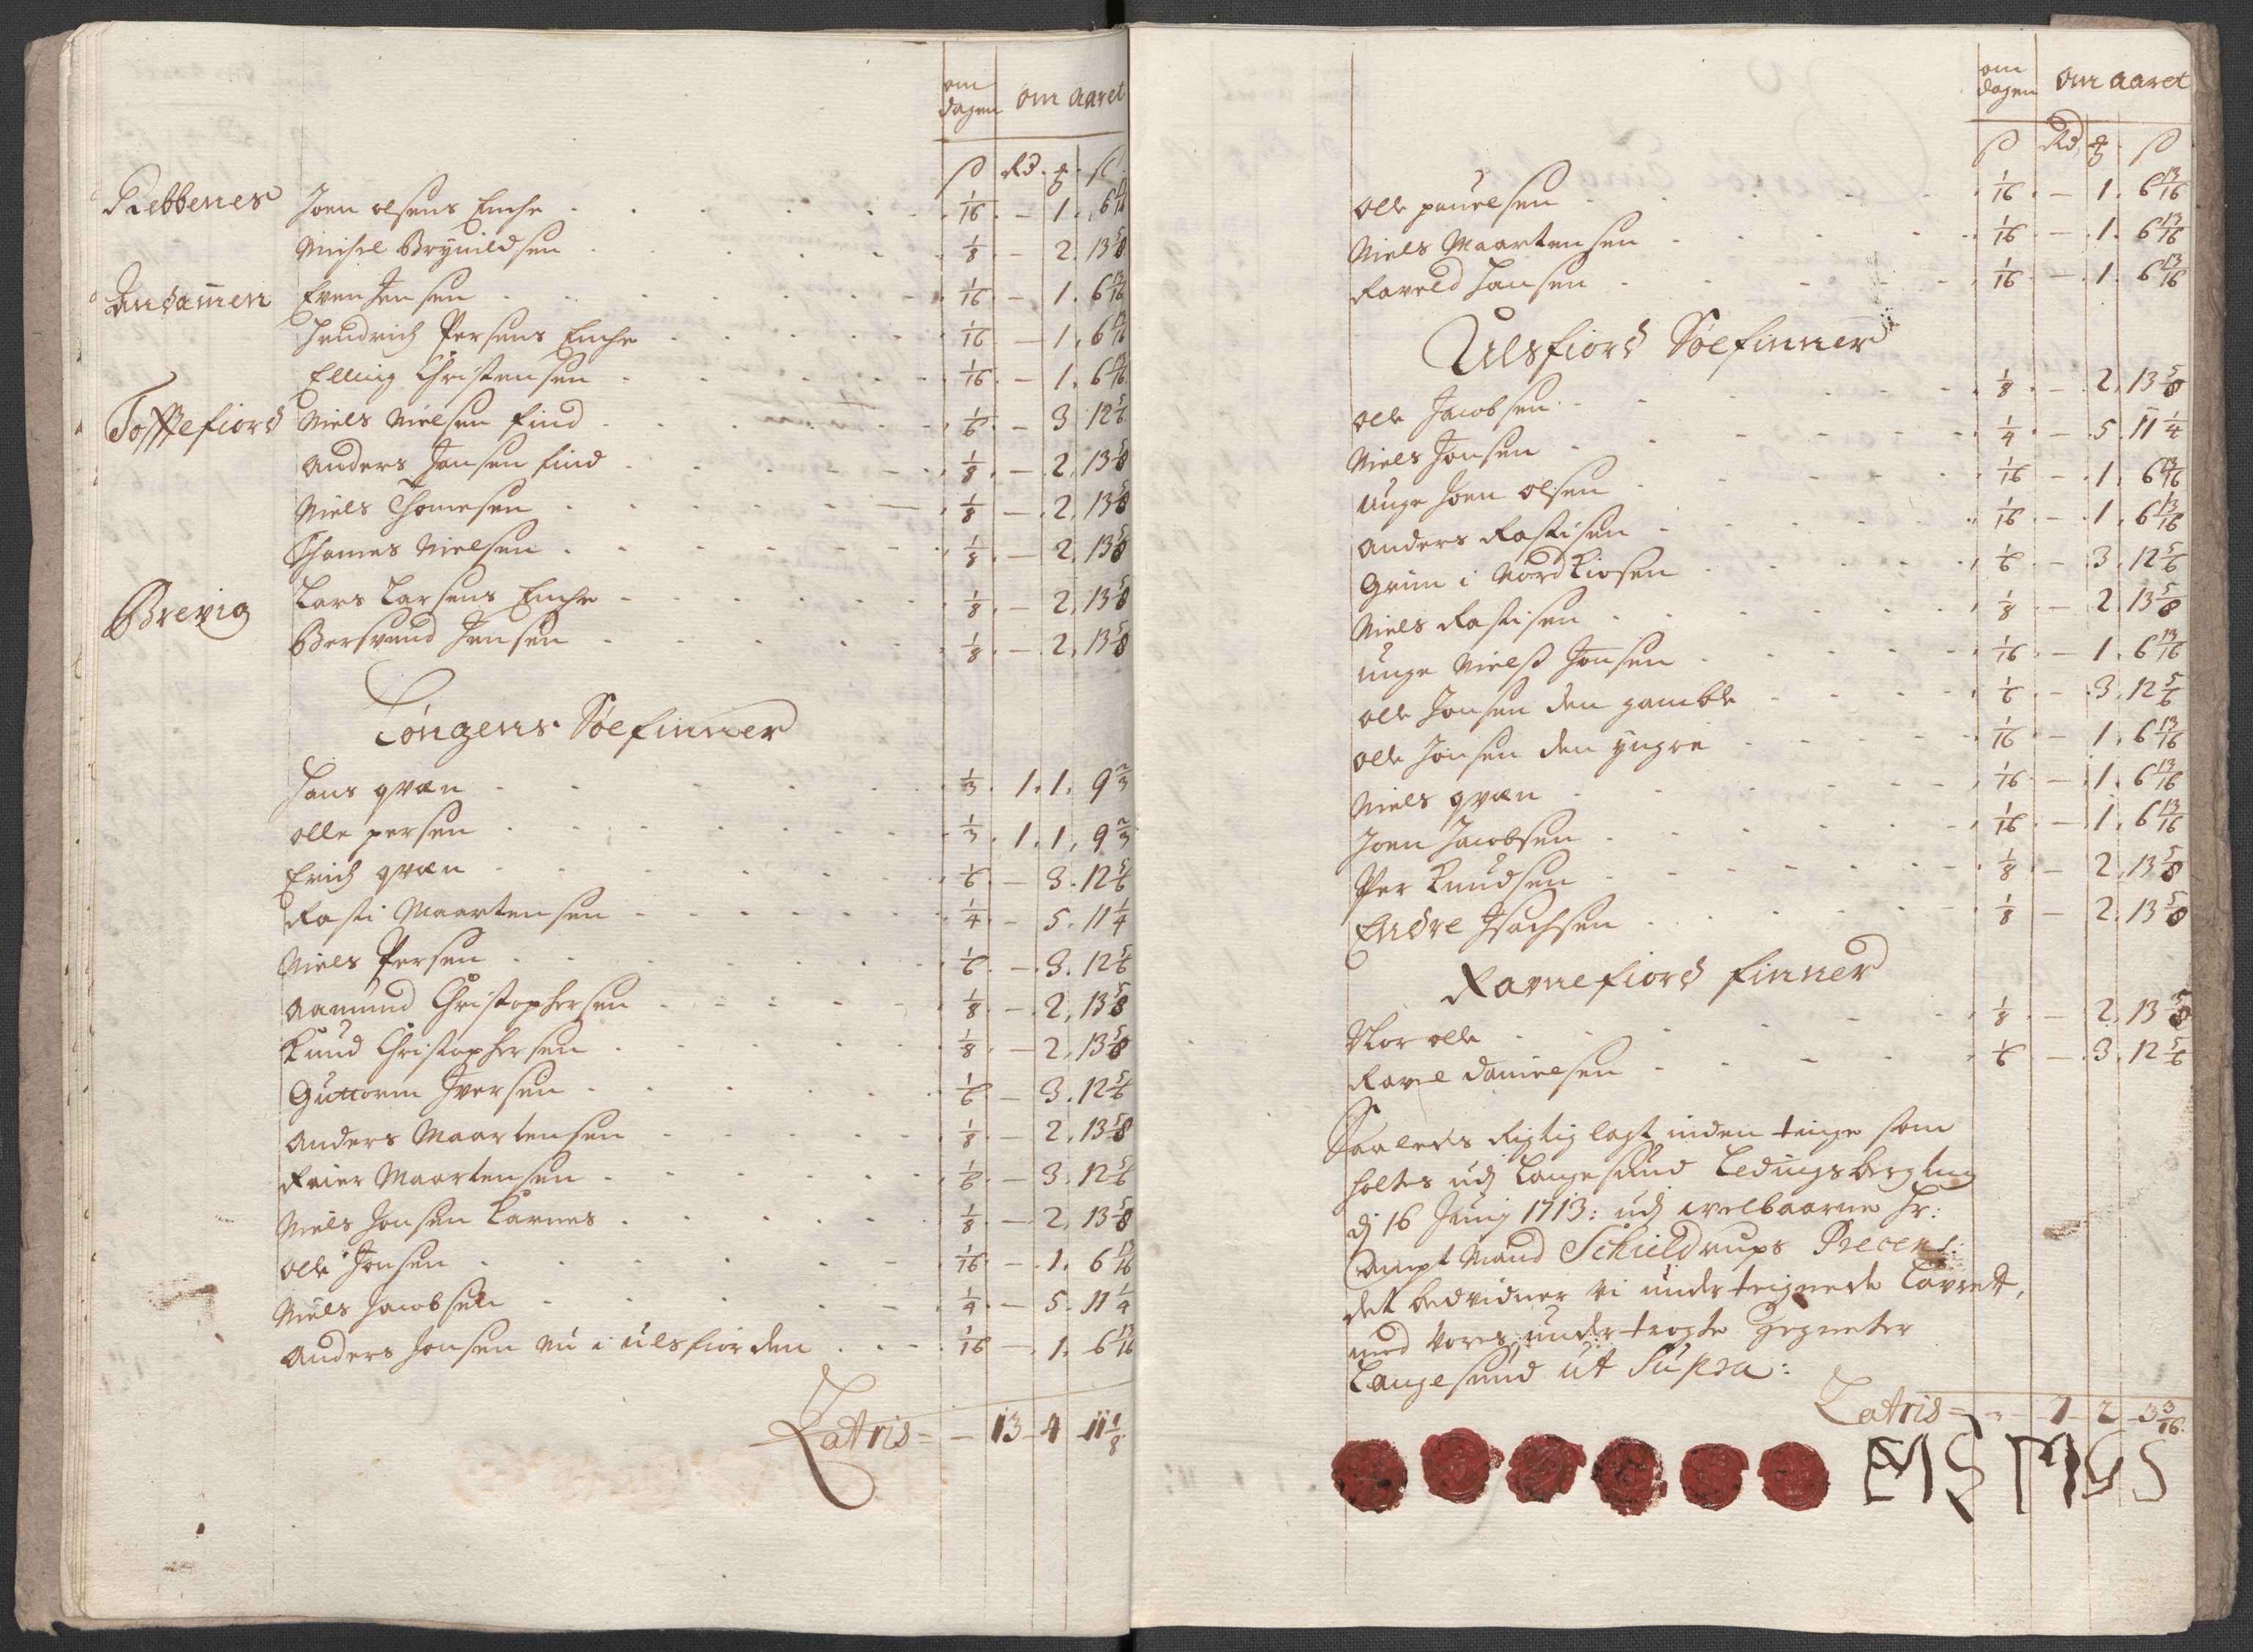 om dagen om aaret
ß Rd. ꝶ. ß
Rebbenes Joen olsens Enche 1/16 – 1. 6 13/16
Michel Brynildsen 1/8 – 2. 13 5/8
Andamen Even Jensen 1/16 – 1. 6 13/16
Hendrich Persens Enche 1/16 – 1. 6 13/16
Elling Christensen 1/16 – 1. 6 13/16
Toffefiord Niels Nielsen find 1/6 – 3 12 5/6
Anders Jonsen find 1/8 – 2. 13 5/8
Niels Thomesen 1/8 – 2. 13 5/8
Thomes Nielsen 1/8 – 2. 13 5/8
Brevig Lars Larsens Enche 1/8 – 2. 13 5/8
Bersvend Jensen 1/8 – 2. 13 5/8
Løngens Søefinner
Hans qvæn 1/3 1. 1. 9 2/3
olle persen 1/3 1. 1. 9 2/3
Erich qvæn 1/6 – 3. 12 5/6
Rasti Maartensen 1/4 – 5. 11 1/4
Niels Persen 1/6 – 3. 12 5/6
Aamund Christophersen 1/8 – 2. 13 5/8
Knud Christophersen 1/8 – 2. 13 5/8
Guttorm Iversen 1/6 – 3. 12 5/6
Anders Maartensen 1/8 – 2. 13 5/8
Reier Maartensen 1/6 – 3. 12 5/6
Niels Jonsen Karnes 1/8 – 2. 13 5/8
olle Jonsen 1/16 – 1. 6 13/16
Niels Jacobsen 1/4 – 5. 11 1/4
Anders Jonsen nu i ulsfiorden 1/16 – 1. 6 13/16
Latris – 13 4 11 1/8
om dagen om aaret
ß Rd. ꝶ ß
olle pauelsen 1/16 – 1. 6 13/16
Niels Maartensen 1/16 – 1. 6 13/16
Raveld Hansen 1/16 – 1. 6 13/16
Ulsfiord Søefinner
olle Jacobsen 1/8 – 2. 13 5/8
Niels Jonsen 1/4 – 5. 11 1/4
unge Joen olsen 1/16 – 1. 6 13/16
Anders Rastisen 1/16 – 1. 6 13/16
Grim i Nordkiosen 1/6 – 3. 12 5/6
Niels Rastisen 1/8 – 2. 13 5/8
unge Nielß Jonsen 1/16 – 1. 6 13/16
olle Jonsen den gamble 1/6 – 3. 12 5/6
olle Jonsen den yngre 1/16 – 1. 6 13/16
Niels qvæn 1/16 – 1. 6 13/16
Joen Jacobsen 1/16 – 1. 6 13/16
Per Knudsen 1/8 – 2. 13 5/8
Endre Isachsen 1/8 – 2. 13 5/8
Ravnefiord finner
Stor olle 1/8 – 2. 13 5/8
Ravel danielsen 1/6 – 3. 12 5/6
Saaledes Rigtig lagt inden tinge som
holtes udj Langesund Ledingsbergting
dj 16 Junij 1713: udj welbaarne Hr:
Ampt Mand Schieldrups Precens:
det bedvidner vi undertegnede Lavret,
med vores undertrogte zegneter
Langesund ut Supra:
Latris – 7 2 3 3/16
EMS MGS